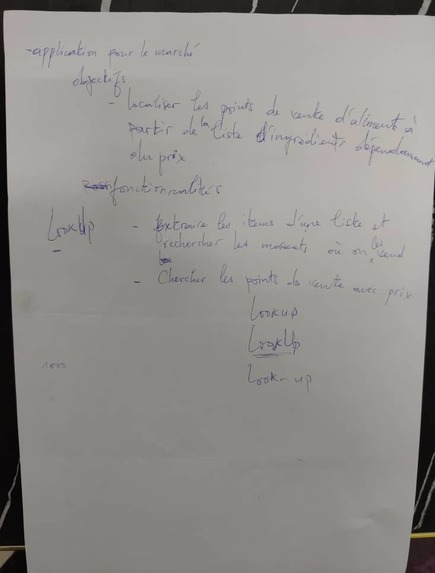 - application pour le marché
objectifs
- Localiser les points de vente d'aliment à
partir de la liste d'ingredients dépendamment
du prix
fonctionnalités
LookUp
- Extraire les items d'une liste et
rechercher les où on les vend
- Chercher les points de vente avec prix
Lookup
LookUp
Look-up
1000